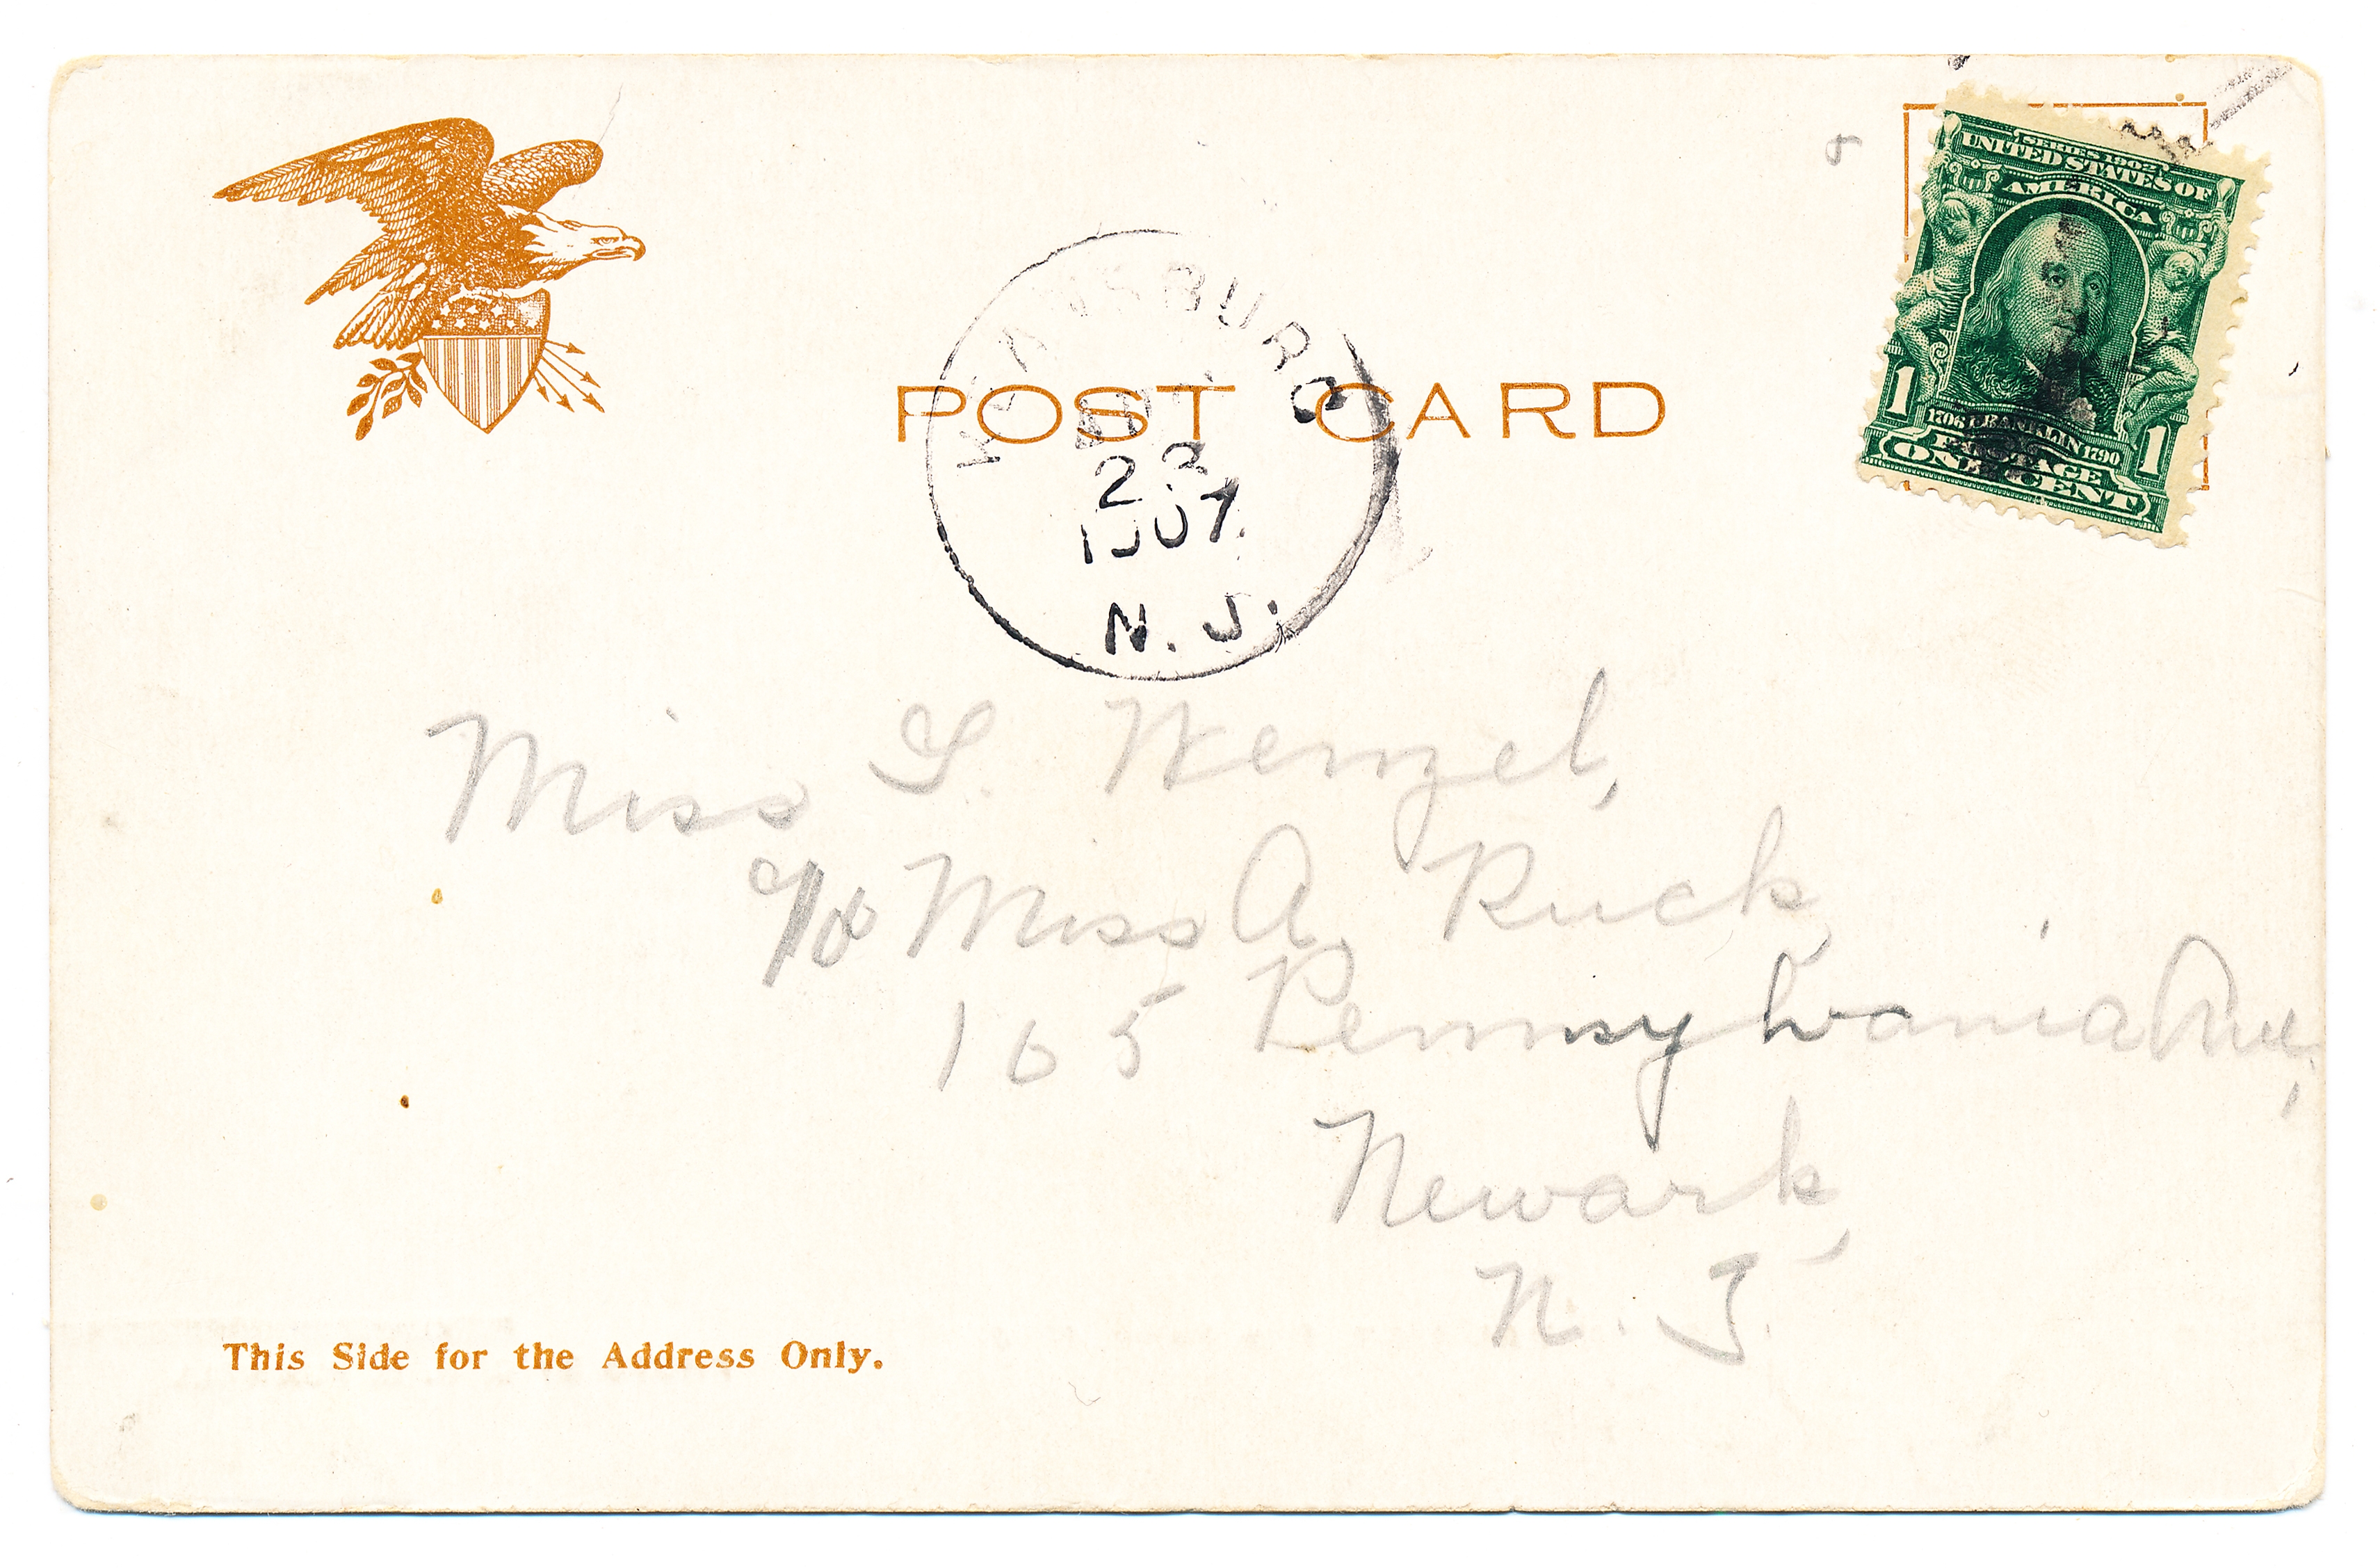 SERIES 1902
UNITED STATES OF
AMERICA
1706 FRANKLIN 1790
POSTAGE
1 ONE CENT 1
KEANSBURG
23
1907
N. J.
POST CARD
Miss G. Wenzel,
c/o Miss A. Ruck,
165 Pennsylvania Ave,
Newark,
N. J.
This Side for the Address Only.